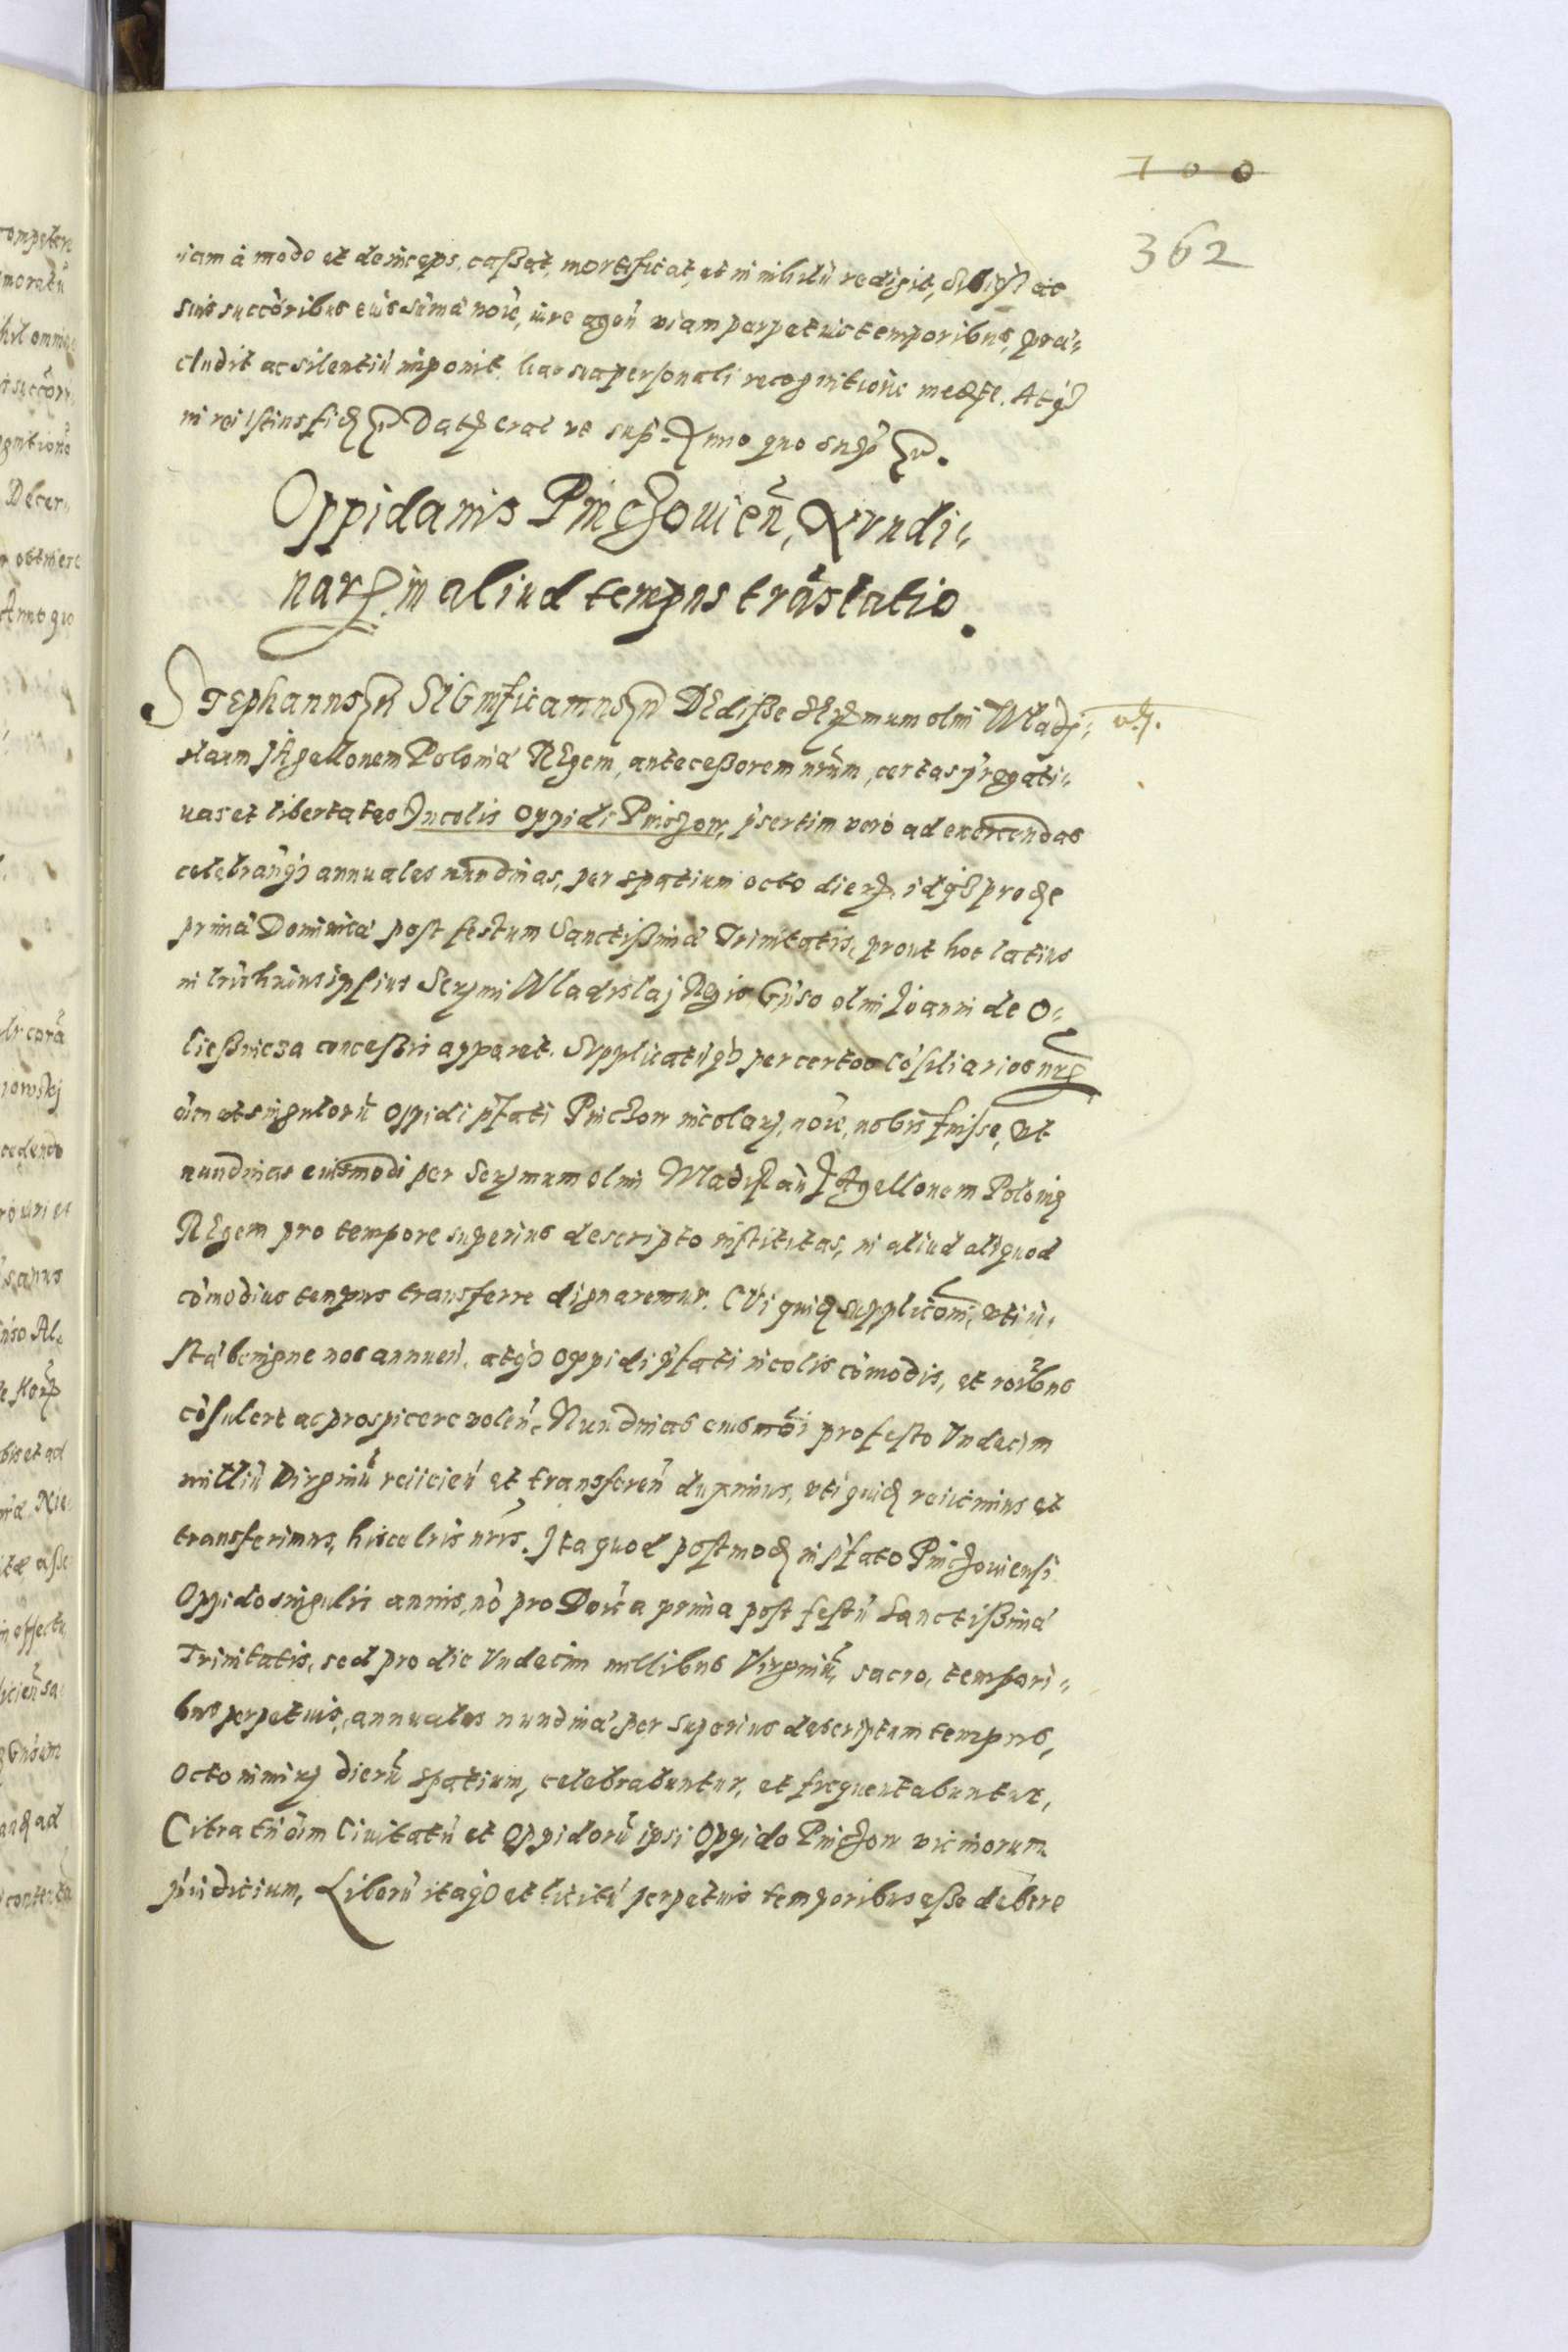 700
362
iam à modo et deinceps, cassat, mortificat, et in nihilū redigit, Sibiqȝ etc
suis succoribus eius summa noīe, iure agen̄ viam perpetuis temporibus, præ„
cludit ac silentiū imponit. hac sua personali recognitione medte. Atqȝ
in rei istius fidē etc. Dat Crac ut supr. Anno quo supra etc.
Oppidanis Pinczouien̄, Nundi„
nar in aliud tempus trāslatio.
STEphanus etc SIGnificamus etc DEdisse SErmum olim Wladi„
slaum JAgellonem Poloniæ REgem, antecessorem nrūm, certas prrogati„
uas et libertates Incolis oppidi Pinczow, prsertim vero ad exercendas
celebranqȝ annuales nundinas, per spatium octo dier, idqȝ pro die
prima Dominica post festum Sanctissimæ Trinitatis, prout hoc latius
in lris huius ipsius Sermi Wladislaj Regis Gnso olim Joanni de O„
liessnicza concessis apparet. Supplicatūqȝ per certos cōsiliarios nros
oīm et singulorū oppidi prfati Pinczow incolar, noīe, nobis fuisse, ut
nundinas eiusmodi per Sermum olim Wladislaū JAgellonem Poloniæ
REgem pro tempore superius descripto institutas, in aliud aliquod
cōmodius tempus transferre dignaremur. CUi quid supplicaoni, uti iu„
stæ benigne nos annuen̄, atqȝ oppidi prfati incolis cōmodis, et roībus
cōsulere ac prospicere volen̄, Nundinas eiusmōi pro festo Vndecim
milliū Virginū reiicien̄ et transferen̄ duximus, uti quidē reiicimus et
transferimus, hisce lris nris. Ita quod postmodū in prfato Pinczouiensi
Oppido singulis annis, nō pro Dnica prima post festū Sanctissimæ
Trinitatis, sed pro die Vndecim millibus Virginū sacro, tempori„
bus perpetuis, annuales nundinæ per superius descriptum tempus,
octo nimir dierū spatium, celebrabuntur, et frequentabuntur,
Citra tn̄ oīm Ciuitatū et Oppidorū ipsi Oppido Pinczow vicinorum
priudicium, Liberū itaqȝ et licitū perpetuis temporibus esse debere